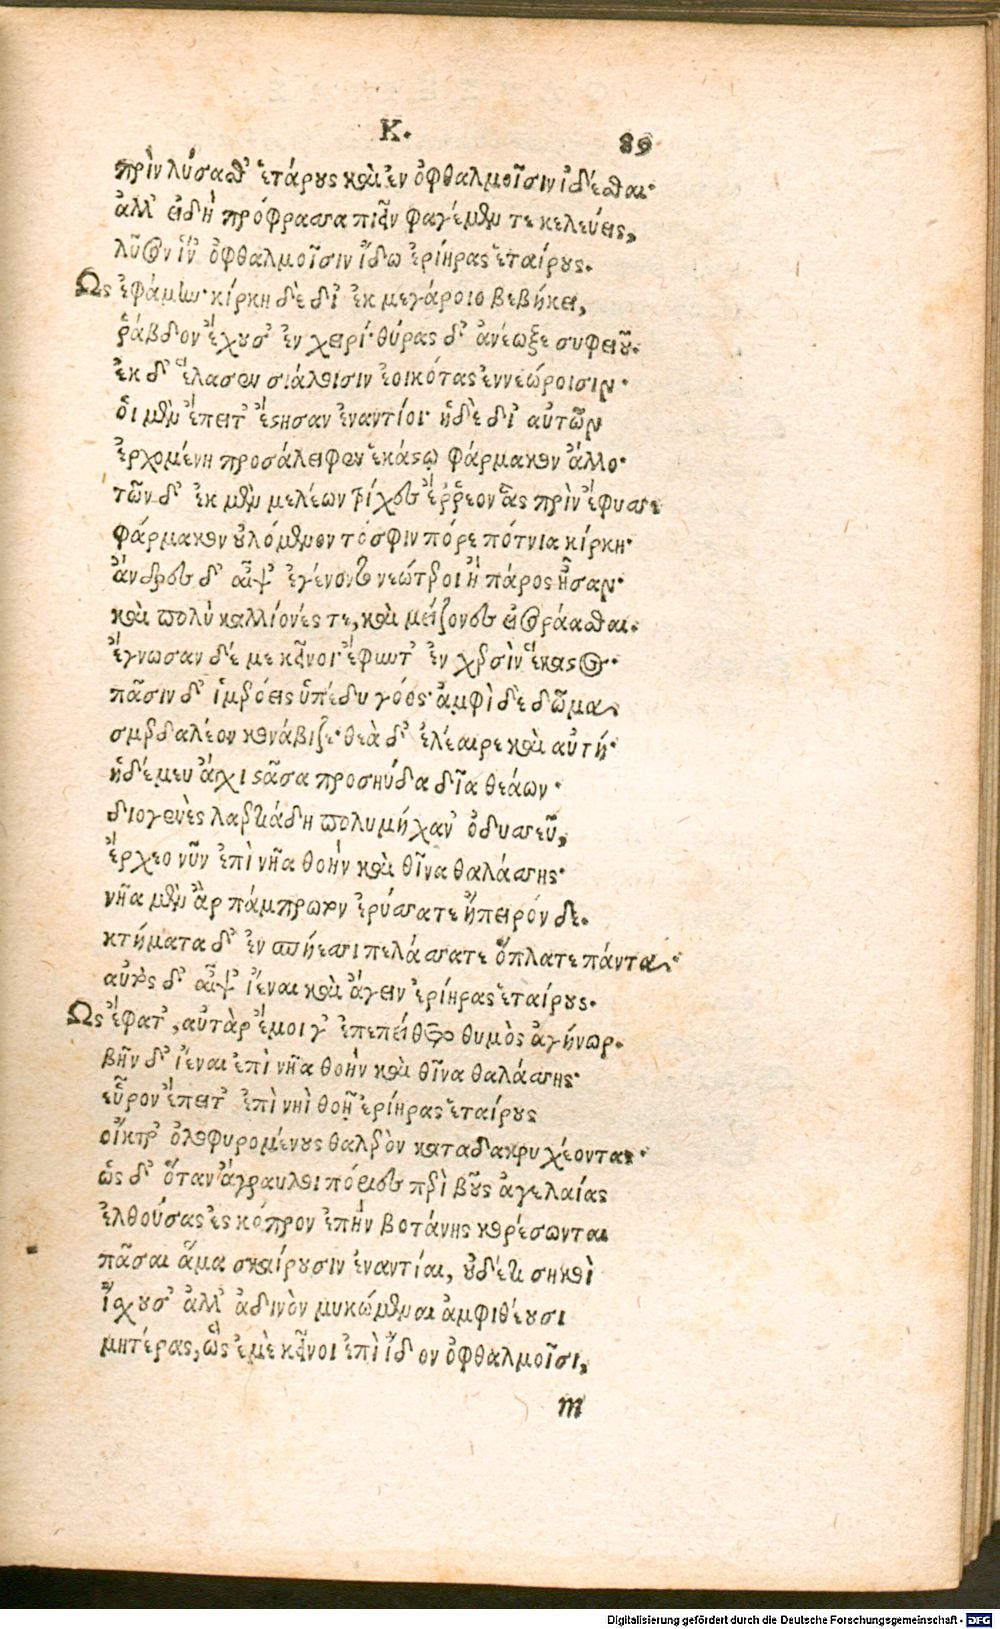 Κ. 89
πρὶν λύσασθ' ἑτάρους καὶ ἐν ὀφθαλμοῖσιν ἰδέσθαι·
ἀλλ' εἰ δὴ πρόφρασσα πιεῖν φαγέμεν τε κελεύεις,
λῦσον ἵν' ὀφθαλμοῖσιν ἴδω ἐρίηρας ἑταίρους.
Ως ἐφάμην· κίρκη δὲ δι' ἐκ μεγάροιο βεβήκει,
ῥάβδον ἔχουσ' ἐν χειρί· θύρας δ' ἀνέωξε συφειοῦ.
ἐκ δ' ἔλασεν σιάλοισιν ἐοικότας ἐννεώροισιν·
οἱ μὲν ἔπειτ' ἔστησαν ἐναντίοι· ἡ δὲ δι' αὐτῶν
ἐρχομένη προσάλειφεν ἑκάστῳ φάρμακον ἄλλο·
τῶν δ' ἐκ μὲν μελέων τρίχες ἔῤῥεον ἃς πρὶν ἔφυσσε
φάρμακον οὐλόμενον τόσφιν πόρε πότνια κίρκη·
ἄνδρες δ' αἶψ' ἐγένοντο νεώτεροι ἢ πάρος ἦσαν·
καὶ πολὺ καλλίονές τε, καὶ μείζονες εἰσοράασθαι.
ἔγνωσαν δέ με κεῖνοι· ἔφυντ' ἐν χερσὶν ἕκαστος·
πᾶσιν δ' ἱμερόεις ὑπέδυ γόος· ἀμφὶ δὲ δῶμα
σμερδαλέον κονάβιζε· θεὰ δ' ἐλέαιρε καὶ αὐτή·
ἡ δέ μευ ἄγχι στᾶσα προσηύδα δῖα θεάων·
διογενὲς λαερτιάδη πολυμήχαν' ὀδυσσεῦ,
ἔρχεο νῦν ἐπὶ νῆα θοὴν καὶ θῖνα θαλάσσης·
νῆα μὲν ἂρ πάμπρωτον ἐρύσσατε ἤπειρόν δε.
κτήματα δ' ἐν σπήεσσι πελάσσατε ὅπλα τε πάντα·
αὐτὸς δ' αἶψ' ἰέναι καὶ ἄγειν ἐρίηρας ἑταίρους.
Ως ἔφατ', αὐτὰρ ἔμοι γ' ἐπεπείθετο θυμὸς ἀγήνωρ.
βῆν δ' ἰέναι ἐπὶ νῆα θοὴν καὶ θῖνα θαλάσσης·
εὗρον ἔπειτ' ἐπὶ νηῒ θοῇ ἐρίηρας ἑταίρους
οἴκτρ' ὀλοφυρομένους θαλερὸν κατὰ δακρυ χέοντας·
ὡς δ' ὅταν ἄγραυλοι πόριες περὶ βοῦς ἀγελαίας
ἐλθούσας ἐς κόπρον ἐπὴν βοτάνης κορέσωνται
πᾶσαι ἅμα σκαίρουσιν ἐναντίαι, οὐδέτι σηκοὶ
ἴσχουσ' ἀλλ' ἀδινὸν μυκώμεναι ἀμφιθέουσι
μητέρας, ὣς ἐμὲ κεῖνοι ἐπὶ ἴδον ὀφθαλμοῖσι,
m
Digitalisierung gefördert durch die Deutsche Forschungsgemeinschaft - DFG